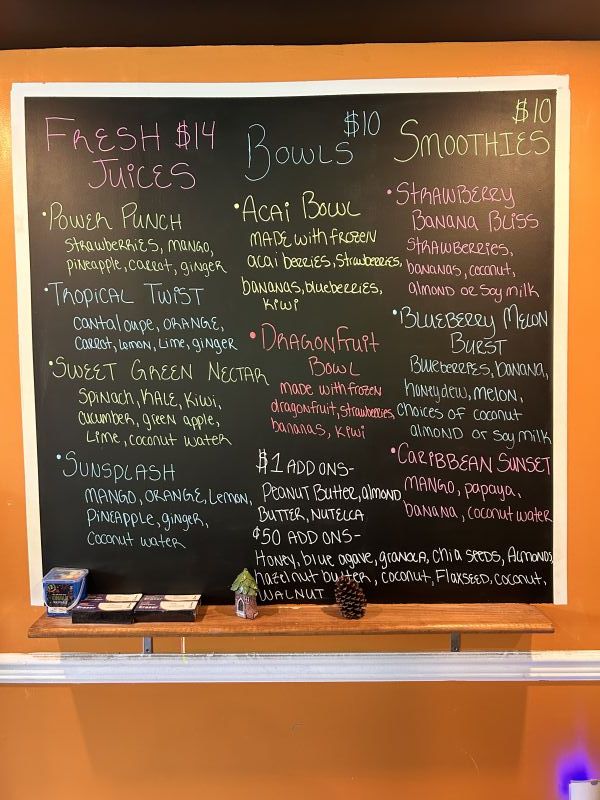 FRESH $14
JUICES
•POWER PUNCH
STRAWBERRIES, MANGO,
PINEAPPLE, CARROT, GINGER
•TROPICAL TWIST
CANTALOUPE, ORANGE,
CARROT, LEMON, LIME, GINGER
•SWEET GREEN NECTAR
SPINACH, KALE, KIWI,
CUCUMBER, GREEN APPLE,
LIME, COCONUT WATER
•SUNSPLASH
MANGO, ORANGE, LEMON,
PINEAPPLE, GINGER,
COCONUT WATER
$10
BOWLS
•ACAI BOWL
MADE WITH FROZEN
ACAI BERRIES, STRAWBERRIES,
BANANAS, BLUEBERRIES,
KIWI
•DRAGONFRUIT
BOWL
MADE WITH FROZEN
DRAGONFRUIT, STRAWBERRIES,
BANANAS, KIWI
$1 ADD ONS-
PEANUT BUTTER, ALMOND
BUTTER, NUTELLA
¢50 ADD ONS-
HONEY, BLUE AGAVE, GRANOLA, CHIA SEEDS, ALMONDS
HAZELNUT BUTTER, COCONUT, FLAXSEED, COCONUT,
WALNUT
$10
SMOOTHIES
•STRAWBERRY
BANANA BLISS
STRAWBERRIES,
BANANAS, COCONUT,
ALMOND OR SOY MILK
•BLUEBERRY MELON
BURST
BLUEBERRIES, BANANA,
HONEYDEW, MELON,
CHOICES OF COCONUT
ALMOND OR SOY MILK
•CARIBBEAN SUNSET
MANGO, PAPAYA,
BANANA, COCONUT WATER